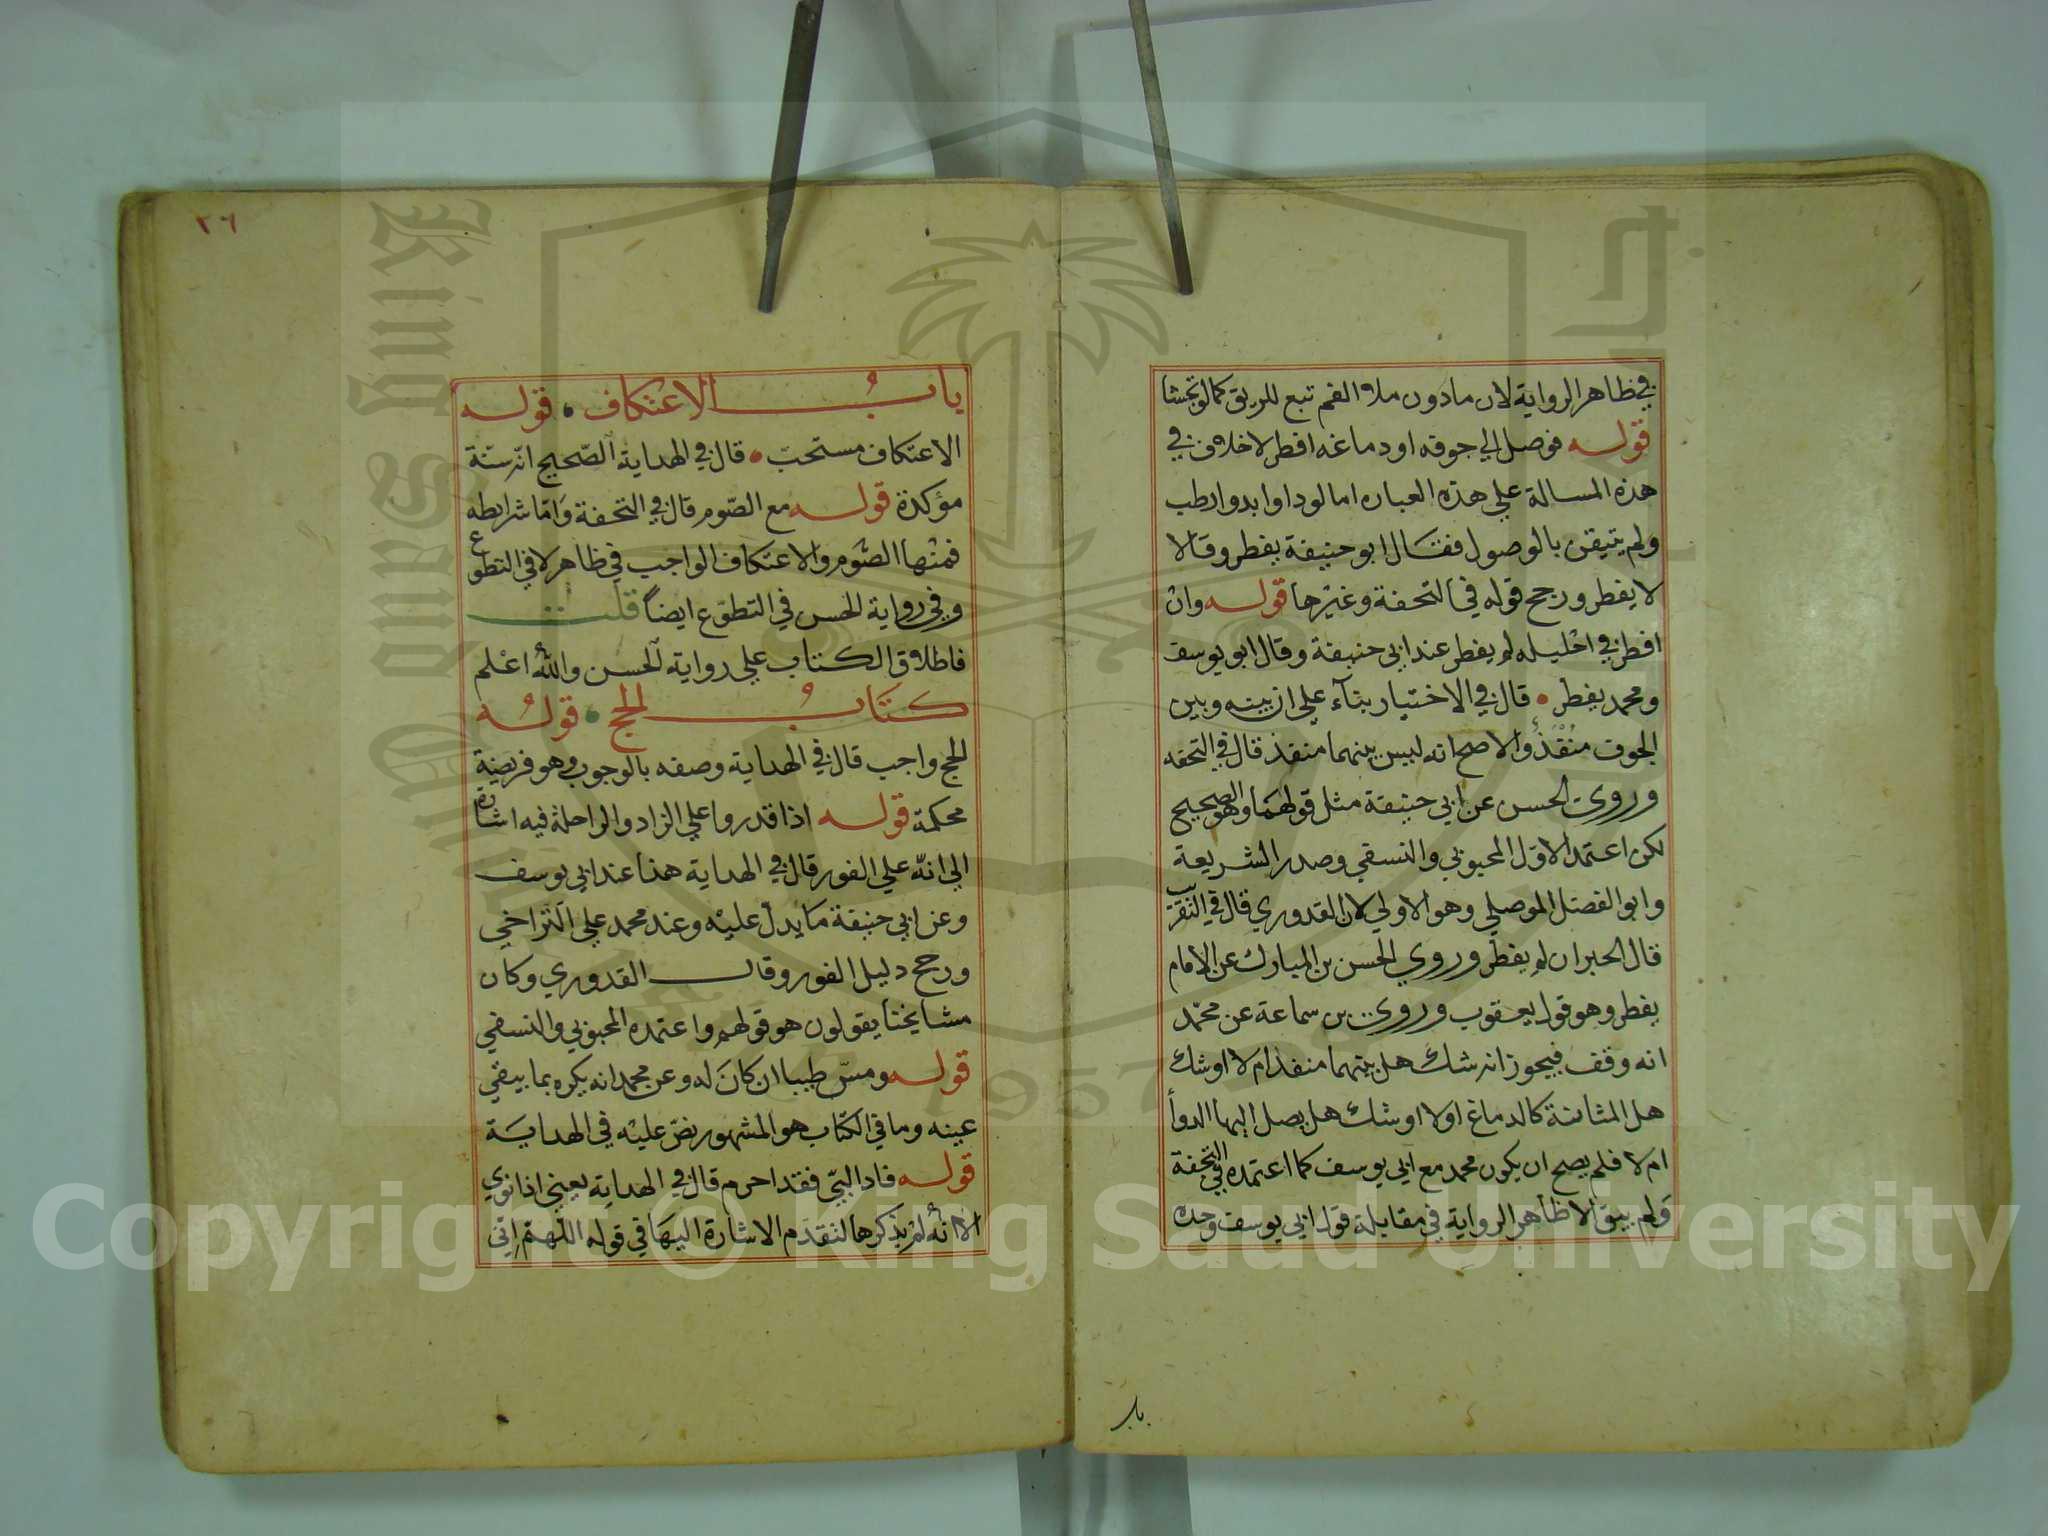 في ظاهر الرواية لان مادون ملاء الفم تبع للريق كما لو تجشا
قوله فوصل الي جوفه او دماغه افطر لاخلاف في
هذه المسالة علي هذه العباره اما لو داوا بدوا رطب
ولم يتيقن بالوصول فقال ابو حنيفة يفطر وقالا
لا يفطر ورجح قوله في التحفة وغيرها قوله وان
افطر في احليله لم يفطر عند ابي حنيفة وقال ابو يوسف
ومحمد يفطر • قال في الاختيار بنآء علي ان بينه وبين
الجوف منفذ والاصح انه ليس بينهما منفذ قال في التحفه
وروى الحسن عن ابي حنيفة مثل قولهما وهو الصحيح
لكن اعتمد الاول المحبوبي والنسفي وصدر الشريعة
وابو الفضل الموصلي وهو الاولي لان القدوري قال في التقريب
قال الحبران لم يفطر وروي الحسن بن المبارك عن الامام
يفطر وهو قول يعقوب وروى بن سماعة عن محمد
انه وقف فيجوز انه شك هل بينهما منفذ ام لا او شك
هل المثانة كالدماغ اولا او شك هل يصل اليها الدوأ
ام لا فلم يصح ان يكون محمد مع ابي يوسف كما اعتمده في التحفة
ولم يبق الا ظاهر الرواية في مقابلة قول ابي يوسف وحده
باب
٢٦
باب الاعتكاف • قوله
الاعتكاف مستحب • قال في الهداية الصحيح انه سنة
مؤكدة قوله مع الصوم قال في التحفة واما شرايطه
فمنها الصوم والاعتكاف الواجب في ظاهر لا في التطوع
وفي رواية الحسن في التطوع ايضاً قلت
فاطلاق الكتاب علي رواية الحسن والله اعلم
كتاب الحج • قوله
الحج واجب قال في الهداية وصفه بالوجوب وهو فريضة
محكمة قوله اذا قدروا علي الزاد والراحلة فيه اشارة
الي انه علي الفور قال في الهداية هذا عند ابي يوسف
وعن ابي حنيفة ما يدل عليه وعند محمد علي التراخي
ورجح دليل الفور وقال القدوري وكان
مشايخنا يقولون هو قولهم واعتمده المحبوبي والنسفي
قوله ومس طيبا ان كان له وعن محمد انه يكره بما يبقي
عينه وما في الكتاب هو المشهور نص عليه في الهداية
قوله فاذا لبي فقد احرم قال في الهداية يعني اذا نوي
الا انه لم يذكرها لتقدم الاشارة اليها في قوله اللهم اني
King Saud University
1957
Copyright © King Saud University